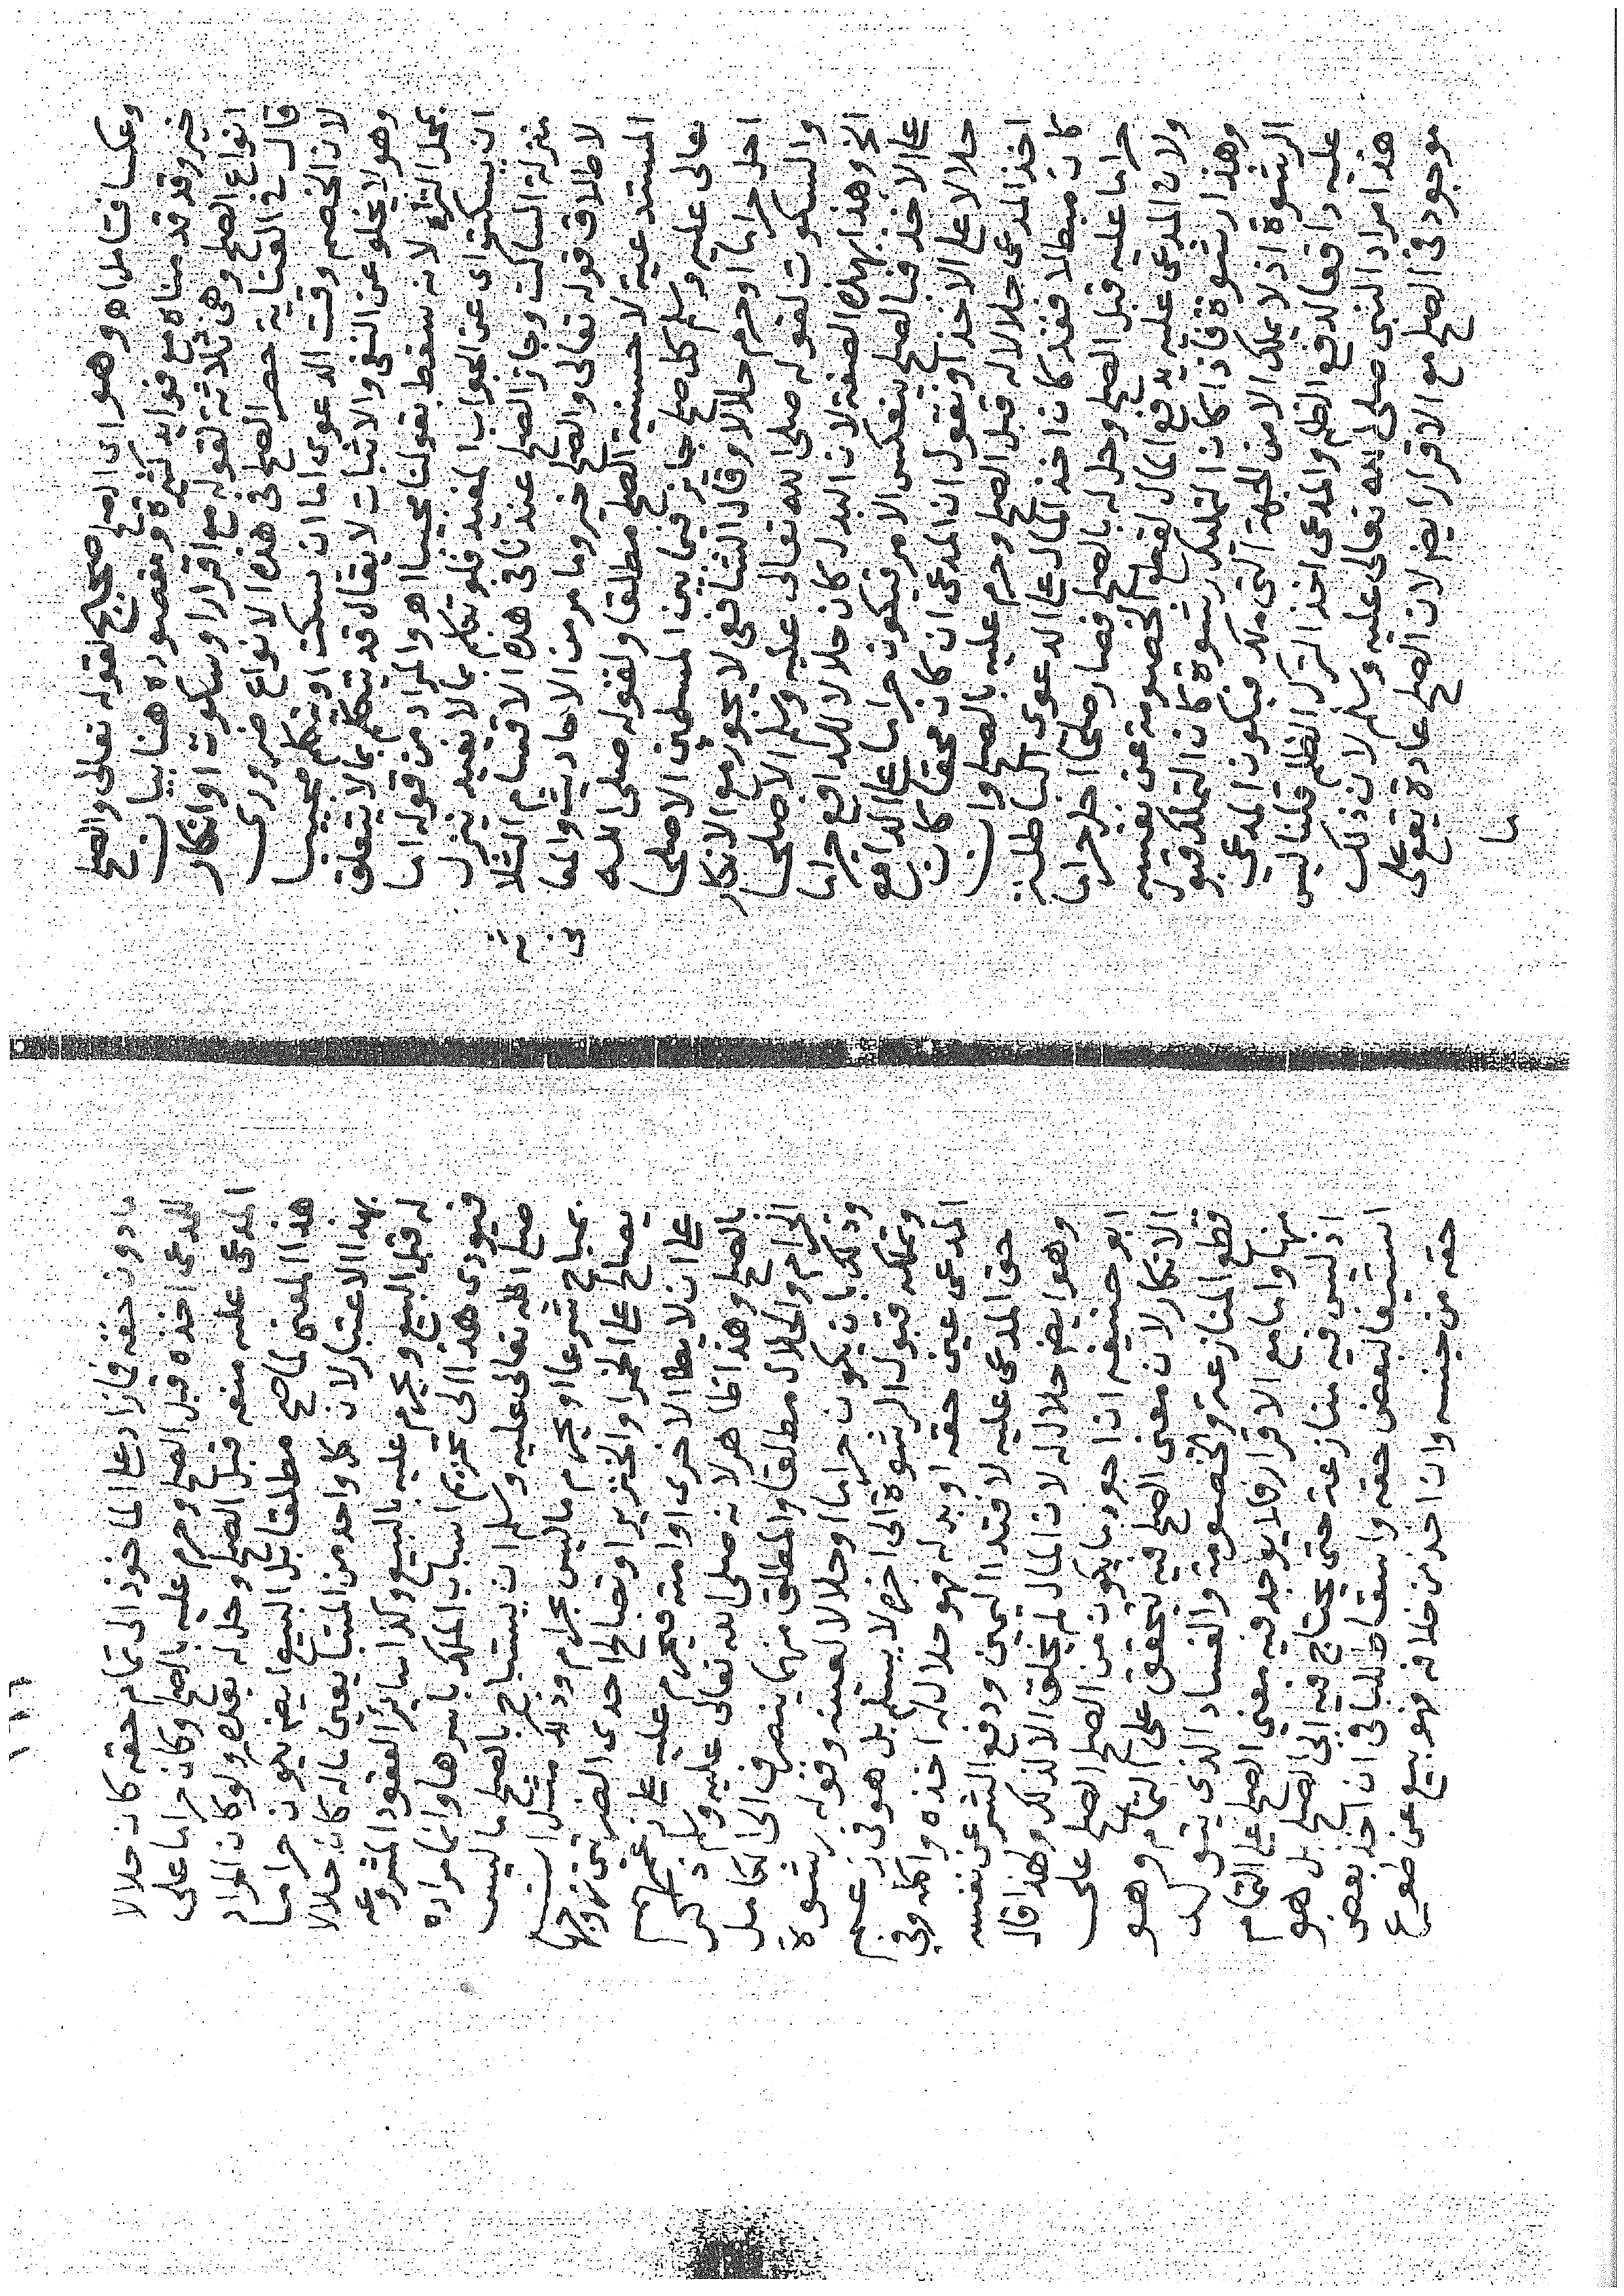 وعكسا فتامل اهـ وهو اى الصلح صحيح لقوله تعالى والصلح
خير وقد قدمناه مع فوايد كثيرة ومقصوده هنا بيان
انواع الصلح وهى ثلاثة لقوله مع اقرار او سكوت او انكار
قال فى العناية حصر الصلح فى هذه الانواع ضرورى
لان الخصم وقت الدعوى اما ان يسكت او يتكلم مجيبا
وهو لا يخلو عن النفى والاثبات لا يقال قد يتكلم بما لا يتعلق
بمحل النزاع لانه سقط بقولنا مجيبا اهـ والمراد من قوله اما
ان يسكت اى عن الجواب المفيد فلو تكلم بما لا يفيد ينزل
منزلة الساكت وجاز الصلح عندنا فى هذه الاقسام الثلاثة
لاطلاق قوله تعالى والصلح خير وما مر من الاحاديث والمعانى
المستدعية لاحسنية الصلح مطلقا ولقوله صلى الله
تعالى عليه وسلم كل صلح جايز فيما بين المسلمين الا صلحا
احل حراما او حرم حلالا وقال الشافعى لا يجوز مع الانكار
والسكوت لقوله صلى الله تعالى عليه وسلم الا صلحا
الخ وهذا بهذه الصفة لان البدل كان حلالا للدافع حراما
على الاخذ فبالصلح ينعكس الامر فيكون حراما على الدافع
حلالا على الاخذ او نقول ان المدعى ان كان محقا كان
اخذ المدعى حلالا له قبل الصلح وحرم عليه بالصلح وان
كان مبطلا فقد كان اخذ المال على الدعوى الباطلة
حراما عليه قبل الصلح وحل له بالصلح فصار صلحا احل حراما
ولان المدعى عليه يدفع المال لقطع الخصومة عن نفسه
وهذا رشوة فاذا كان التمليك رشوة كان التملك قبول
الرشوة اذ لا يملك الا من الجهة التى ملك فيكون المدعى
عليه دافعا لدفع الظلم والمدعى اخذ الترك الظلم قلنا ليس
هذا مراد النبى صلى الله تعالى عليه وسلم لان ذلك
موجود فى الصلح مع الاقرار ايضا لان الصلح عادة يقع على
ما
مادون حقه فما زاد على الماخوذ الى تمام حقه كان حلالا
للمدعى اخذه قبل الصلح وحرم عليه بالصلح وكان حراما على
المدعى عليه منعه قبل الصلح وحل له بعده ولو كان المراد
هذا المعنى لما صح مطلقا بل البيع ايضا يكون حراما
بهذا الاعتبار لان كل واحد من المتبايعين ماله كان حلالا
له قبل البيع ويحرم عليه بالبيع وكذا ساير العقود المشروعه
فيودى هذا الى تحريم اسباب الملك باسرها وانما مراده
صلى الله تعالى عليه وسلم ان يستباح بالصلح ما ليس
بمباح شرعا او يحرم ما ليس بحرام وذلك مثل
يصالح على الخمر او الخنزير او تصالح احدى الضرتين زوجها
على ان لا يطا الاخرى او امته فيحرم عليه على زعمهم
بالصلح وهذا ظاهر لانه صلى الله تعالى عليه وسلم ذكر
الحرام والحلال مطلقا والمطلق منهما ينصرف الى الكامل
وذلك بان يكون حراما او حلالا لعينه وقوله رشوة
وتملكه قبول الرشوة الى اخره لا يسلم بل هو فى زعم
المدعى عين حقه او بدله فهو حلال له اخذه واكله وفى
حق المدعى عليه لافتداء اليمين ودفع الشر عن نفسه
وهو ايضا حلال له لان المال لم يخلق الا لذلك ولهذا قال
ابو حنيفه ان اجود ما يكون من الصلح الصلح على
الانكار لان معنى الصلح فيه يتحقق على التمام وهو
قطع المنازعة والخصومة والفساد الذى يتولد
منها واما مع الاقرار فلا يوجد فيه معنى الصلح على التمام
اذ ليس فيه منازعة حتى يحتاج فيه الى الصلح بل هو
استيفا لبعض حقه واسقاط للباقى ان اخذ بعض
حقه من جنسه وان اخذ من خلافه فهو بيع عن طوع